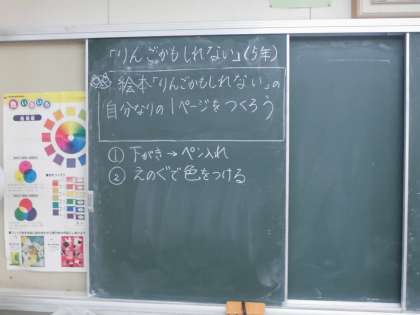 「りんごかもしれない」(5年)
絵本「りんごかもしれない」の
自分なりの1ページをつくろう
① 下がき→ペン入れ
② えのぐで色をつける
色いろいろ
色相環